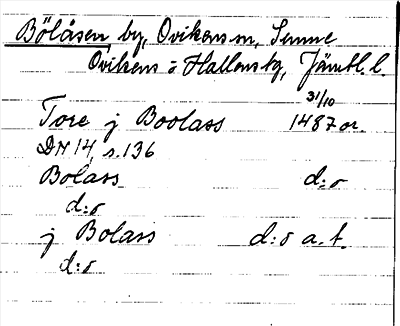 Bölåsen by, Ovikens sn,
Ovikens o Hallens tg, Jämtl. l.
31/10
Tore j Boolass 1487 or.
DN 14, s. 136
Bolass d:o
d:o
j Bolass d:o a. st.
d:o